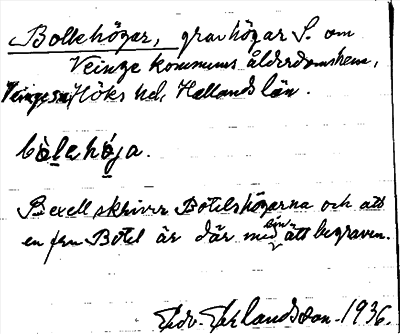 Bollehögar, gravhögar S. om
Veinge kommuns ålderdomshem,
Veinge sn, Höks hd, Hallands län.
bòlehöja.
Bexell skriver Botelshögarna och att
en fru Botel är där med sin ätt begraven.
Edv. Erlandsson. 1936.